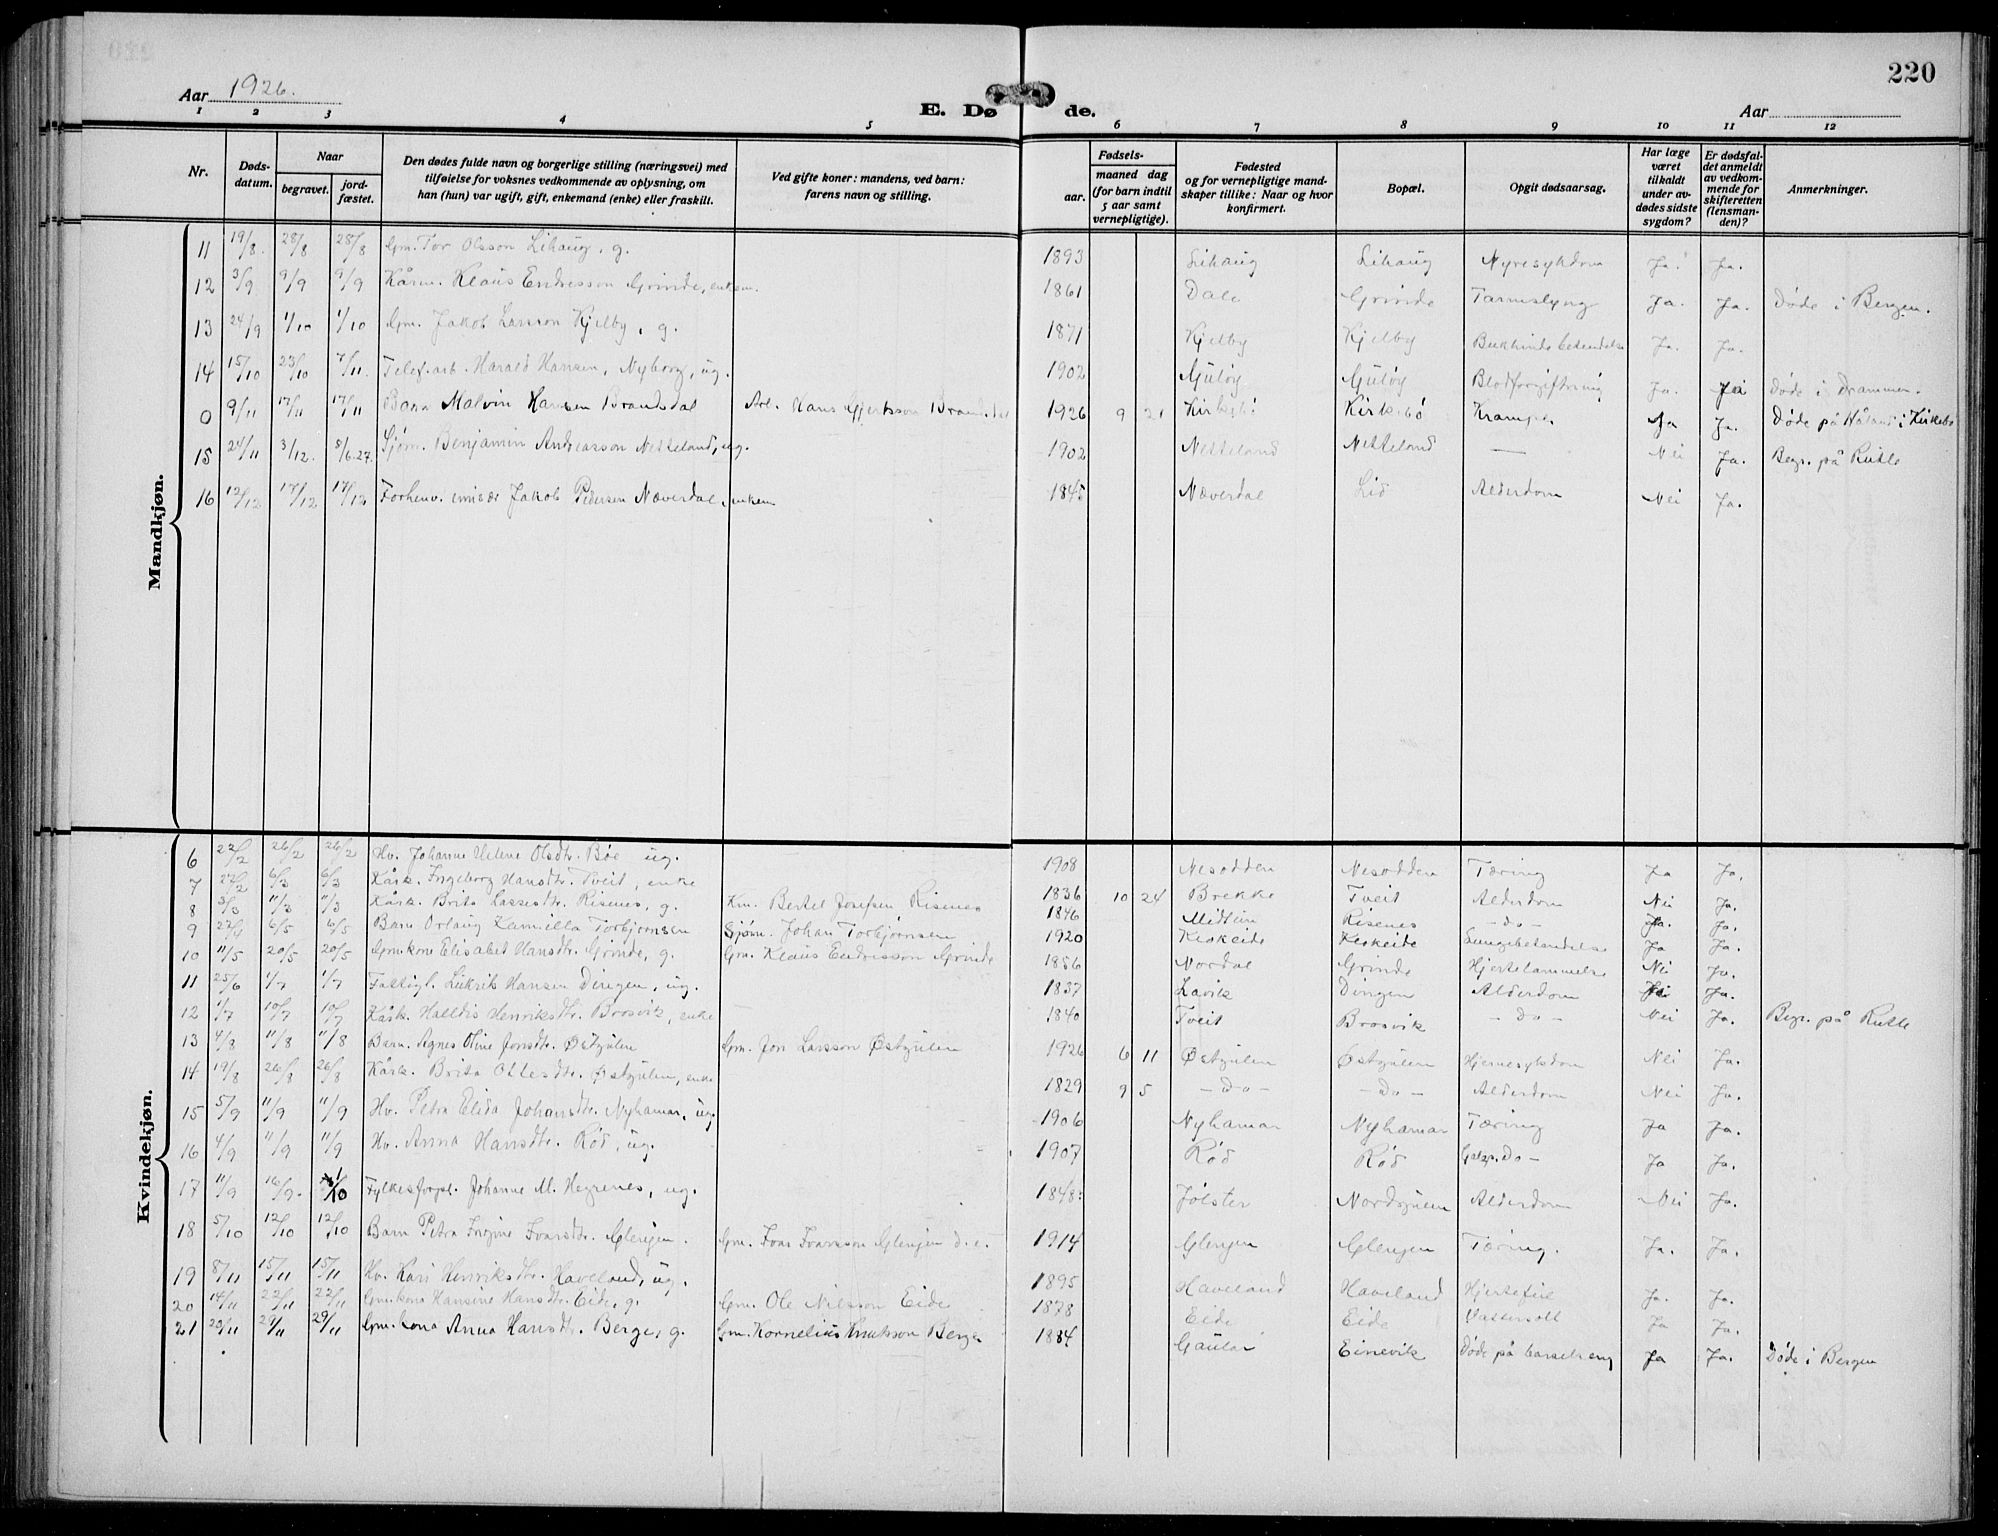 Aar 1926.
E. Døde.
220
Aar
1 2 3 4 5 6 7 8 9 10 11 12
Nr.
Dødsdatum.
Naar
begravet.
jordfæstet.
Den dødes fulde navn og borgerlige stilling (næringsvei) med
tilføielse for voksnes vedkommende av oplysning, om
han (hun) var ugift, gift, enkemand (enke) eller fraskilt.
Ved gifte koner: mandens, ved barn:
farens navn og stilling.
Fødsels-
aar.
maaned dag
(for barn indtil
5 aar samt
vernepligtige).
Fødested
og for vernepligtige mand-
skaper tillike: Naar og hvor
konfirmert.
Bopæl.
Opgit dødsaarsag.
Har læge
været
tilkaldt
under av-
dødes sidste
sygdom?
Er dødsfal-
det anmeldt
av vedkom-
mende for
skifteretten
(lensman-
den)?
Anmerkninger.
Mandkjøn.
11 19/8 28/8 28/8 Gm. Tor Olsson Lihaug, g. 1893 Lihaug Lihaug Nyresykdom Ja. Ja.
12 3/9 9/9 9/9 Kårm. Klaus Endresson Grinde, enkem. 1861 Dale Grinde Tarmslyng Ja. Ja. Døde i Bergen.
13 24/9 1/10 1/10 Gm. Jakob Larsson Kjelby, g. 1871 Kjelby Kjelby Ja. Ja.
14 15/10 23/10 7/11. Telef.arb. Harald Hansen, Nyborg, ug. 1902 Blodforgiftning Ja. Ja Døde i Drammen.
0 9/11 17/11 17/11 Barn Malvin Hansen Brandsdal Arb. Hans Gjertsson Brandsdal 1926 9 21 Kirkebø Kirkebø Krampe. Ja Ja. Døde på i Kirkebø
15 24/11 3/12. 5/6.27. Sjøm. Benjamin Andreasson Netteland, ug. 1902 Netteland Netteland — Nei Ja. Begr. på Rutle
16 12/12 17/12 17/12 Forhenv. Jakob Pedersen Næverdal, enkem 1845 Næverdal Lid Alderdom Nei Ja.
Kvindekjøn.
6 22/2 26/2 26/2 Hv. Johanne Helene Olsdtr. Bøe ug. 1908 Nesodden Nesodden Tæring Ja Ja.
7 27/2 6/3 6/3 Kårk. Ingeborg Hansdtr. Tveit, enke 1836 10 24 Brekke Tveit Alderdom Nei Ja.
8 3/3 11/3 11/3 Kårk. Brita Lassesdtr. Risenes, g. Km. Bertel Josefsen Risenes 1846 Risenes - Do - Ja. Ja.
9 6/5 6/5 Barn Orlaug Kamilla Torbjørnsen Sjøm. Johan Torbjørnsen 1920 Keskeide Keskeide Lungebetendelse Ja Ja.
10 11/5 20/5 20/5 Gmkone Elisabet Hansdtr. Grinde, g. Gm. Klaus Endresson Grinde 1856 Nordal Grinde Hjertelammelse Nei Ja.
11 25/6 1/7 1/7 Fattigl. Hansen Dingen, ug. 1837 Lavik Dingen Alderdom Ja.
12 1/7 10/7 10/7 Kårk. Halldis Henriksdtr. Brosvik, enke — 1840 Tveit Brosvik - Do - Nei Ja. Begr. på Rutle
13 4/8 11/8 11/8 Barn. Agnes Oline Jonsdtr. Østgulen Gm. Jon Larsson Østgulen 1926 6 11 Østgulen Østgulen Hjernesykdom Nei Ja.
14 19/8 26/8 26/8 Kårk. Brita Ottesdtr. Østgulen, enke 1829 9 5 - Do - - Do - Alderdom Nei Ja.
15 5/9 11/9 11/9 Hv. Petra Elida Johansdtr. Nyhamar, ug. 1906 Nyhamar Nyhamar Tæring Ja Ja.
16 4/9 11/9 11/9 Hv. Anna Hansdtr. Rød, ug. 1907 Rød Rød Do - Ja Ja.
17 11/9 16/9. 1/10 Fylkesforpl. Johanne M. Hegrenes, ug. 1848. Jølster Nordgulen Alderdom Nei Ja.
18 5/10 12/10 12/10 Barn Petra Ingine Ivarsdtr. Glenjen. Gm. Ivar Ivarsson Glenjen d.e. 1914 Glenjen Glenjen Tæring. Ja. Ja.
19 8/11 15/11 15/11 Hv. Kari Henriksdtr. Haveland, ug. 1895 Haveland Haveland Hjertefeil Ja. Ja.
20 14/11 22/11 22/11 Gmkone Hansine Hansdtr. Eide, g. Gm. Ole Nilsson Eide 1878 Eide Eide Vattersott Ja Ja.
21 23/11 29/11 29/11 Gm.kona Anna Hansdtr. Berge, g. Gm. Kornelius Knutsson Berge 1884 Gaular Einevik Døde på barselseng Ja Ja. Døde i Bergen